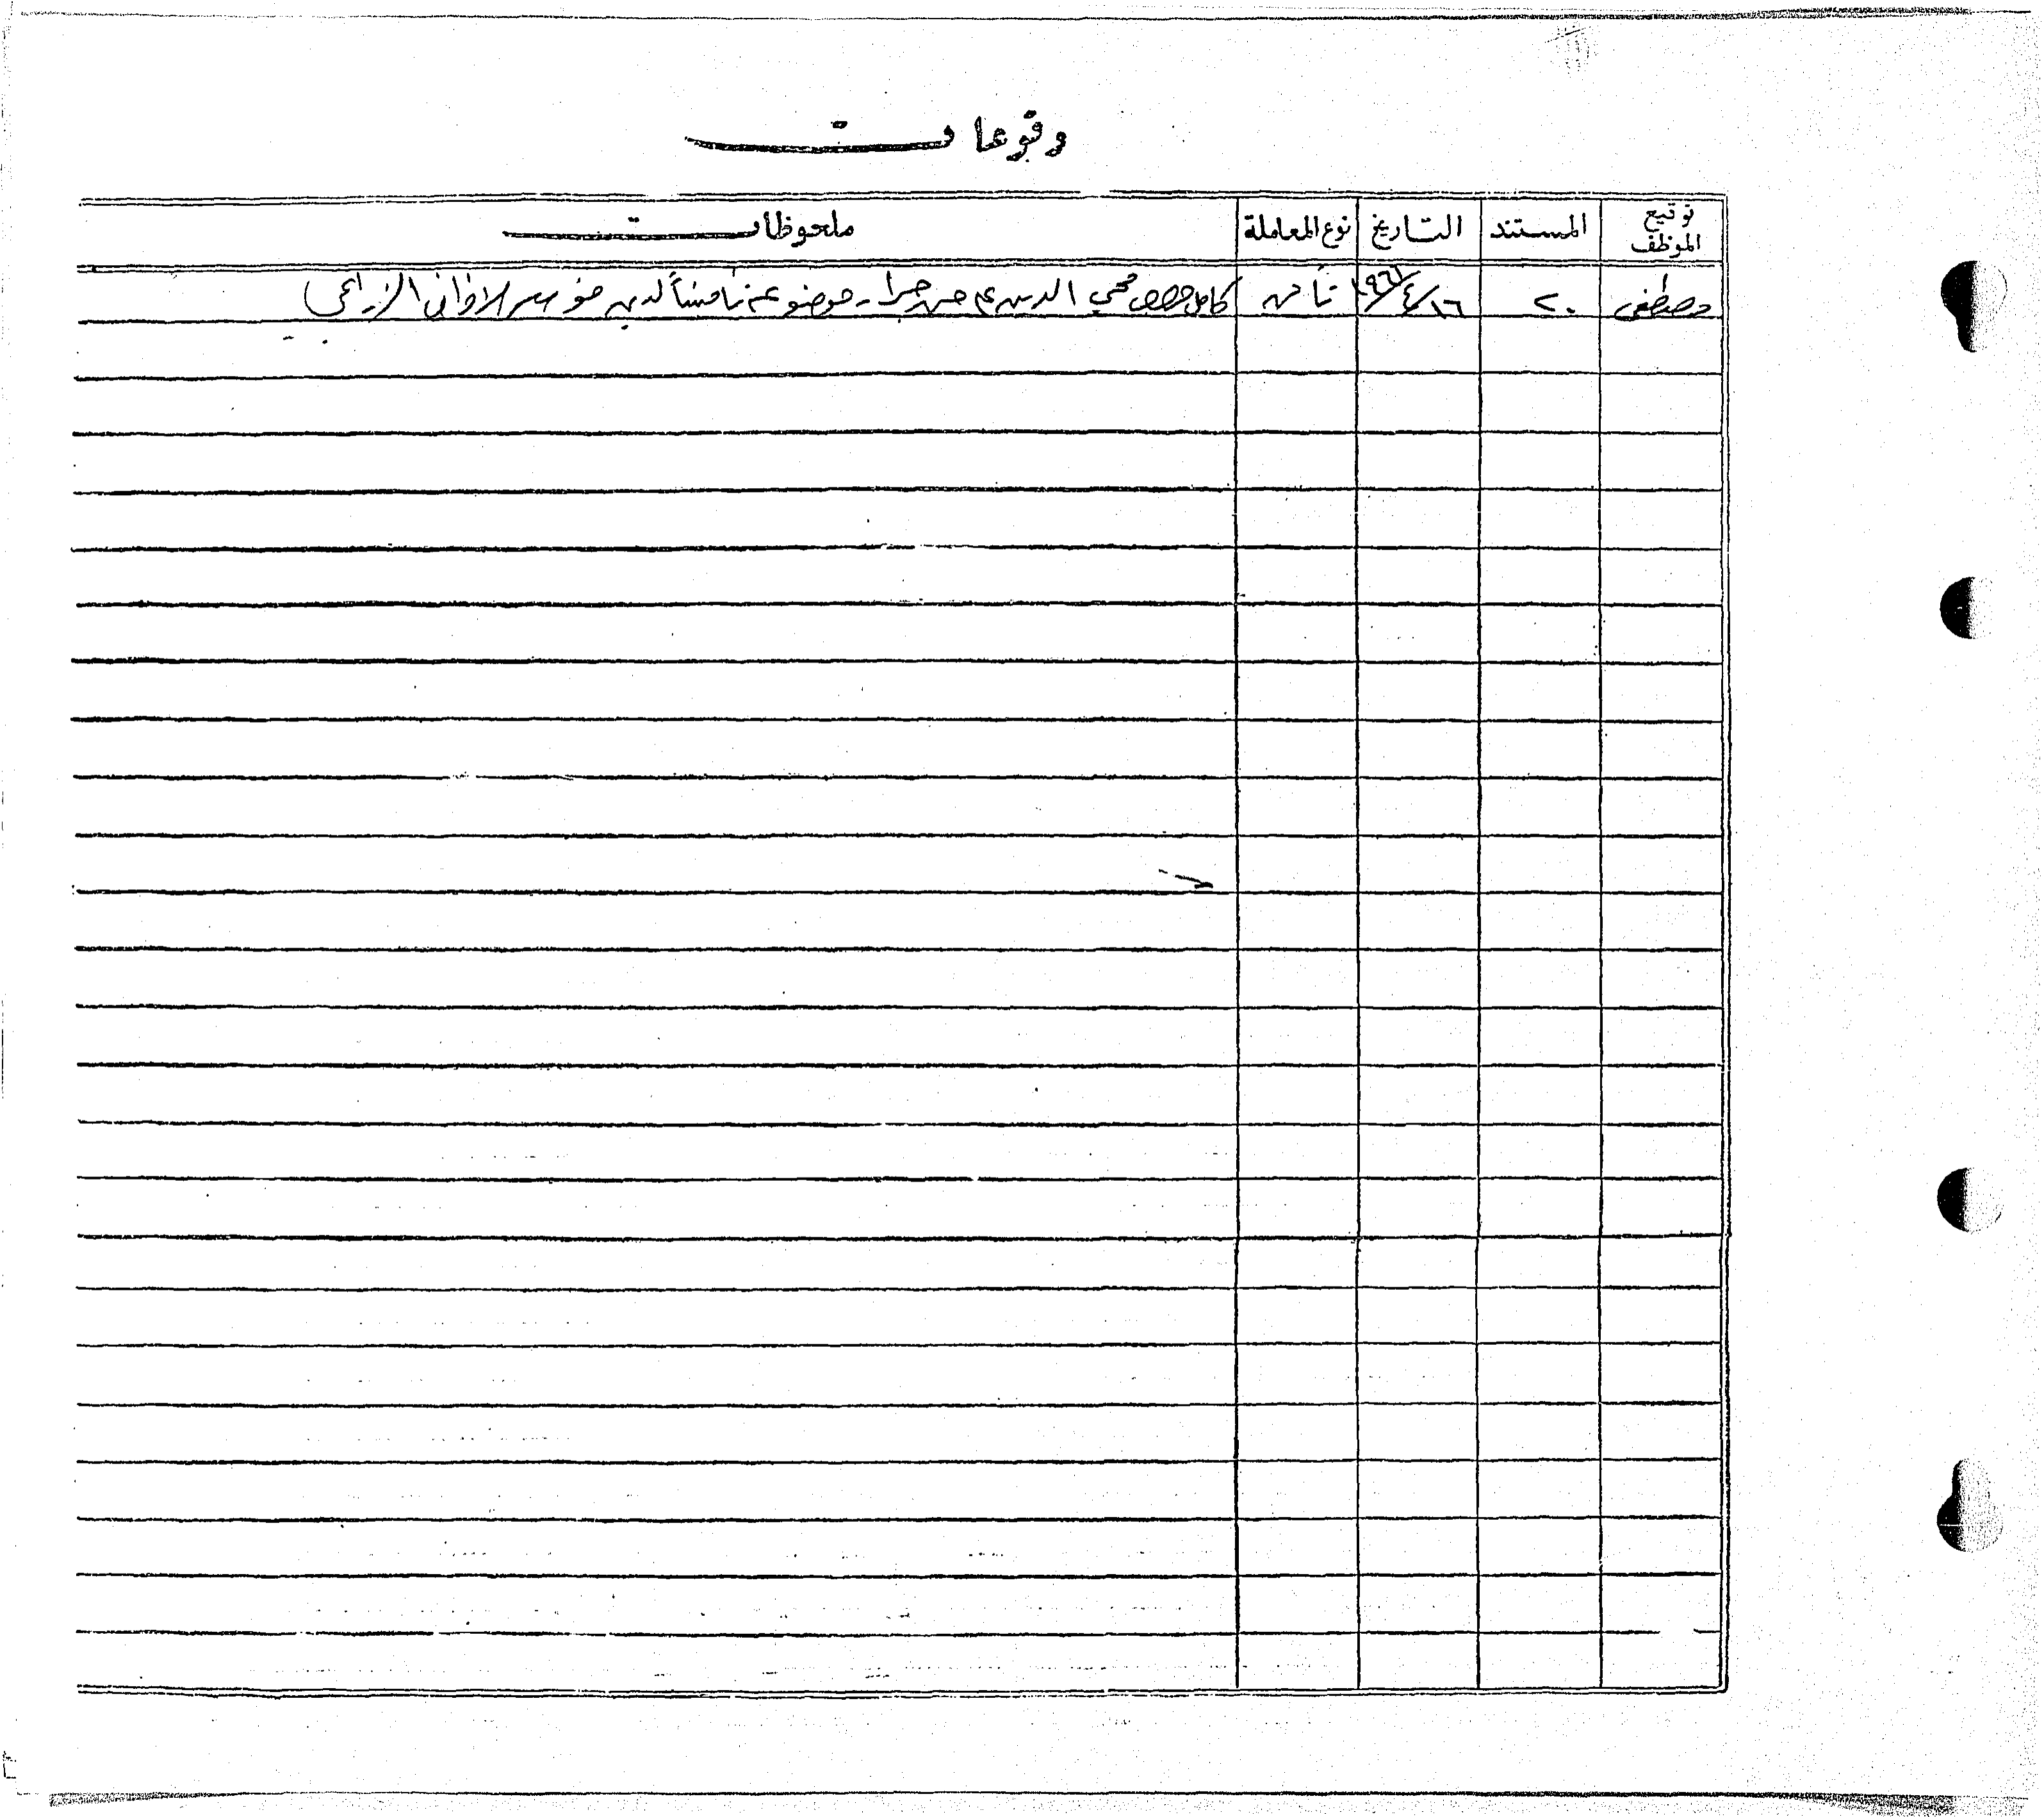 وقوعات
توقيع الموظف المستند التاريخ نوع المعاملة ملحوظات
مصطفى ٢٠ ١٦/٤/١٩٦١ تأمين كامل حصص محي الدين موضوعة تأمينا لدين الزراعي